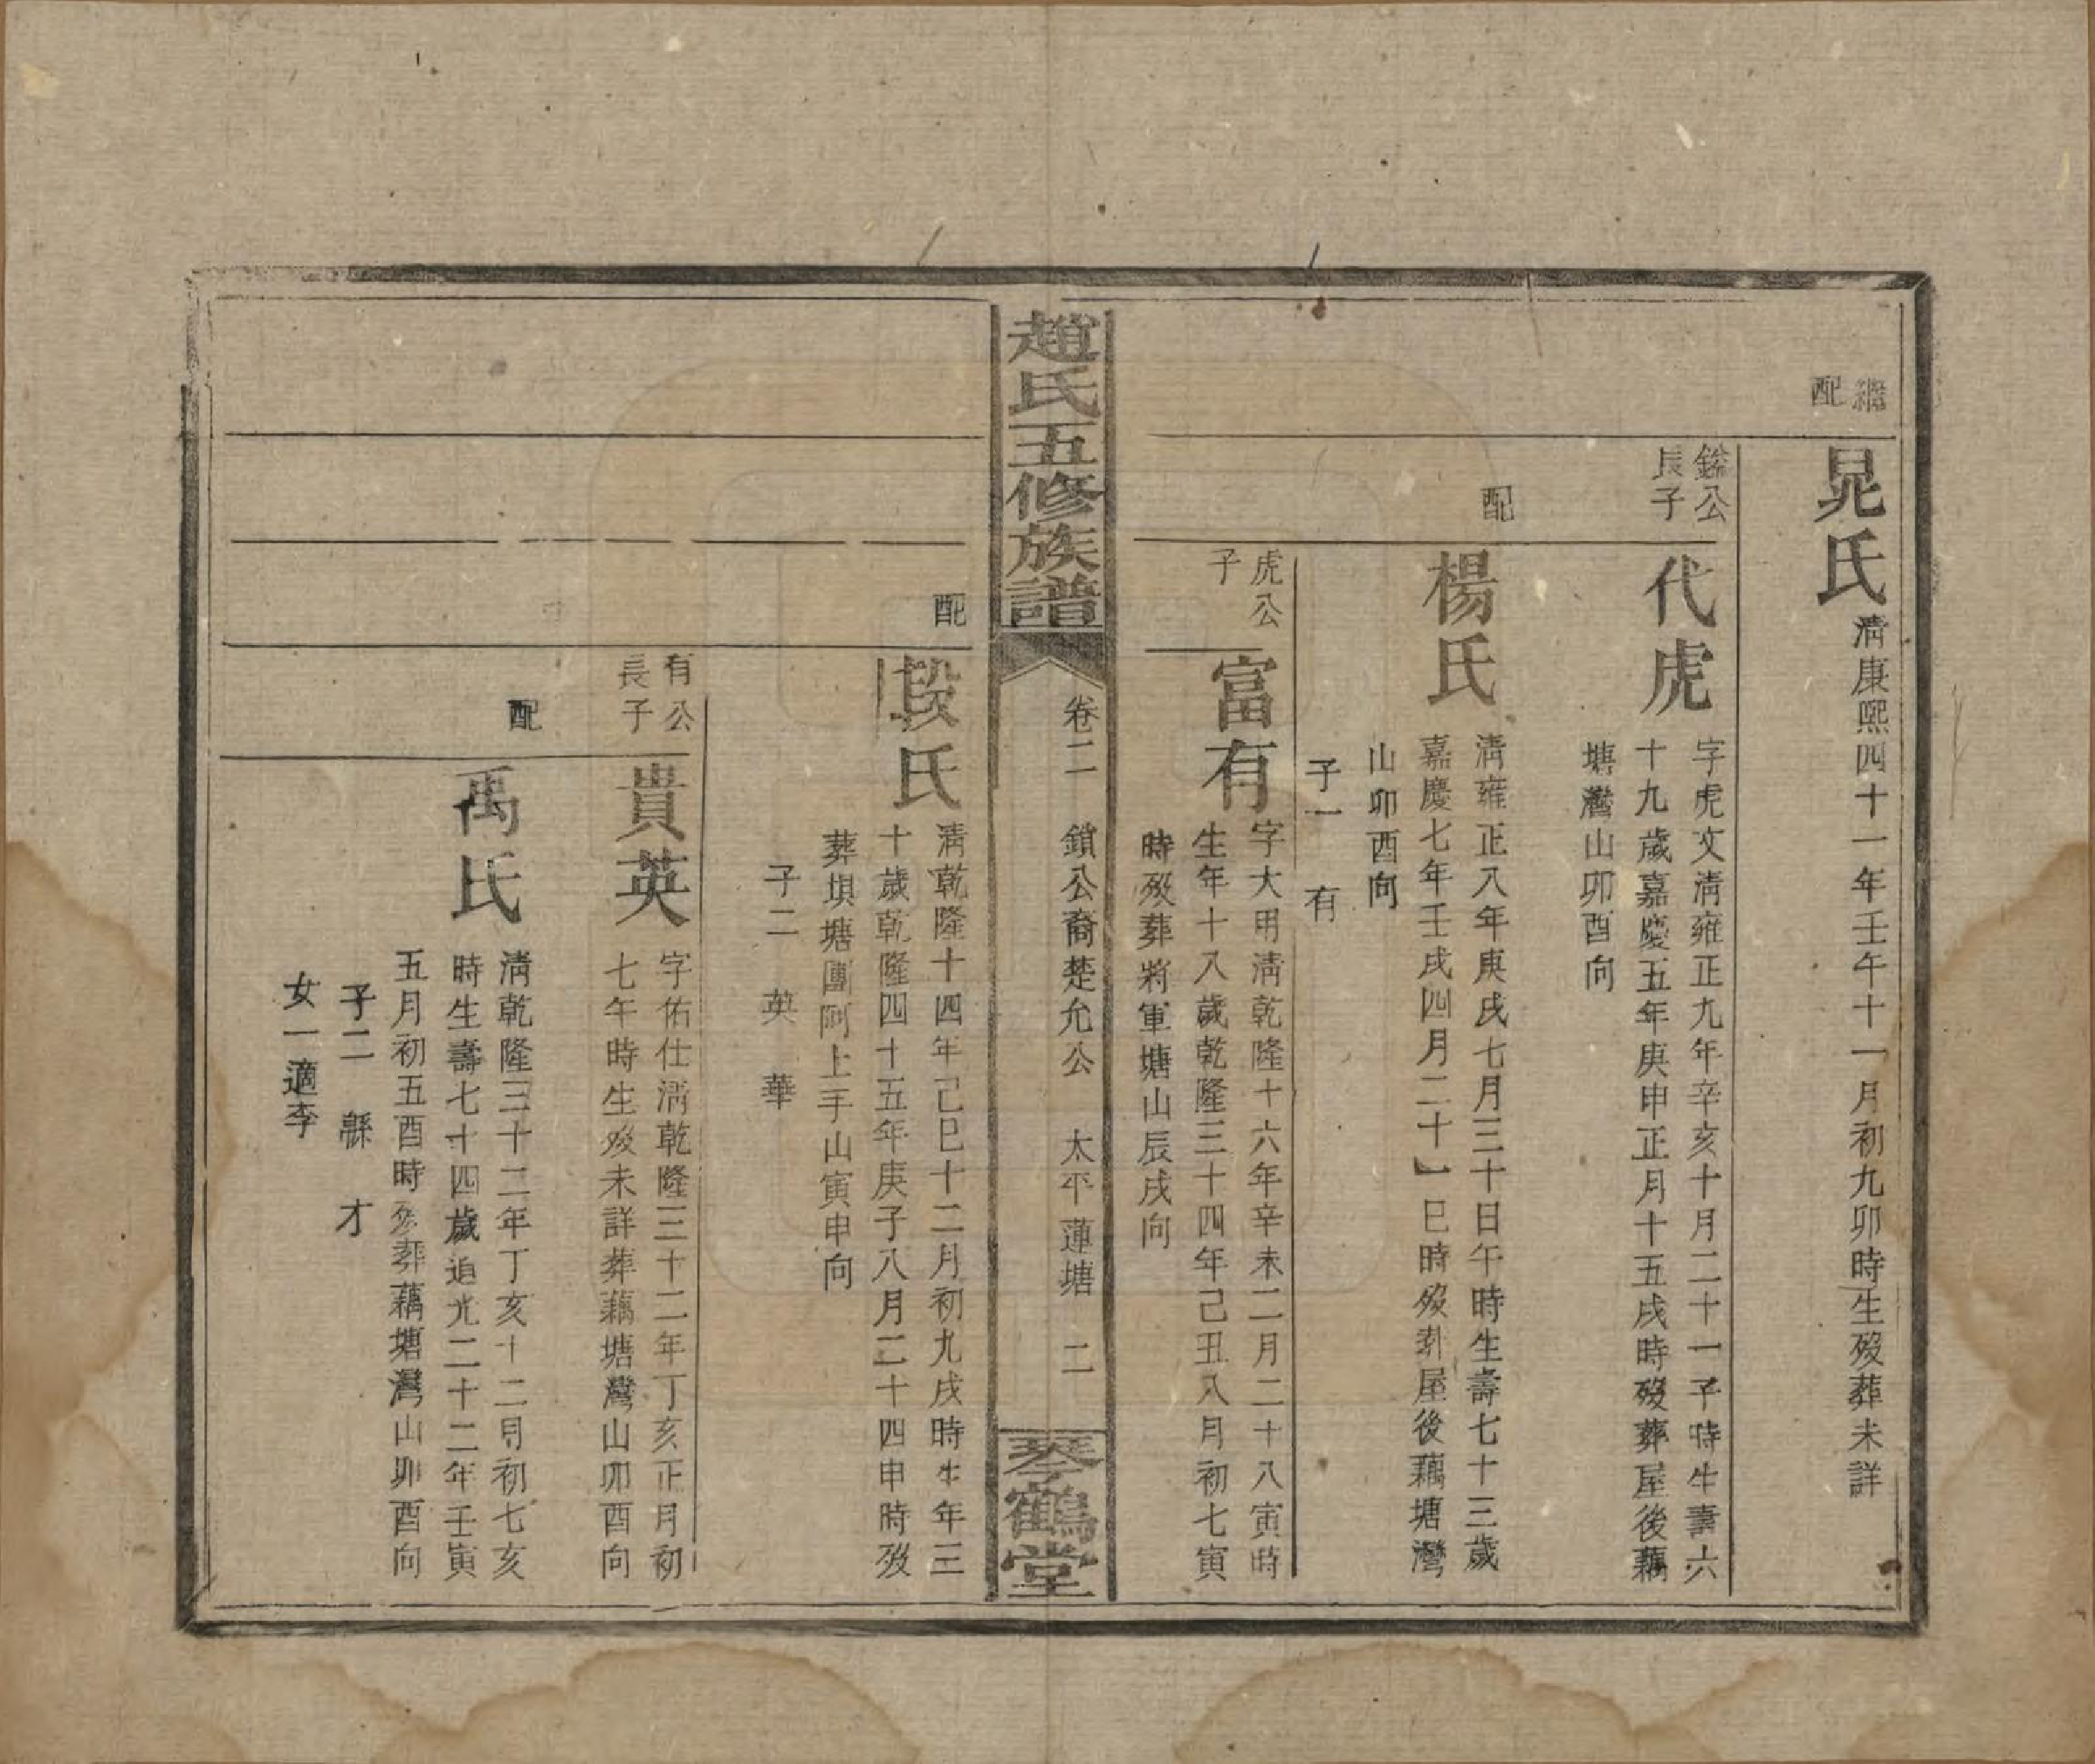 繼
配
晃氏
清康熙四十一年壬午十一月初九卯時生歿葬未詳
公
長子
代虎
字虎文清雍正九年辛亥十月二十一子時生壽六
十九歲嘉慶五年庚申正月十五戌時歿葬屋後藕
塘灣山卯酉向
配
楊氏
清雍正八年庚戌七月三十日午時生壽七十三歲
嘉慶七年壬戌四月二十一巳時歿葬屋後藕塘灣
山卯酉向
子一 有
虎公
子
富有
字大用清乾隆十六年辛未二月二十八寅時
生年十八歲乾隆三十四年己丑八月初七寅
時歿葬將軍塘山辰戌向
趙氏五修族譜
卷二 鎖公裔楚允公 太平蓮塘 二
琴鶴堂
配
段氏
清乾隆十四年己巳十二月初九戌時生年三
十歲乾隆四十五年庚子八月二十四申時歿
葬垻塘團阿上手山寅申向
子二 英 華
有公
長子
貴英
字佑仕清乾隆三十二年丁亥正月初
七午時生歿未詳葬藕塘灣山卯酉向
配
禹氏
清乾隆三十二年丁亥十二月初七亥
時生壽七十四歲道光二十二年壬寅
五月初五酉時歿葬藕塘灣山卯酉向
子二 繇 才
女一適李